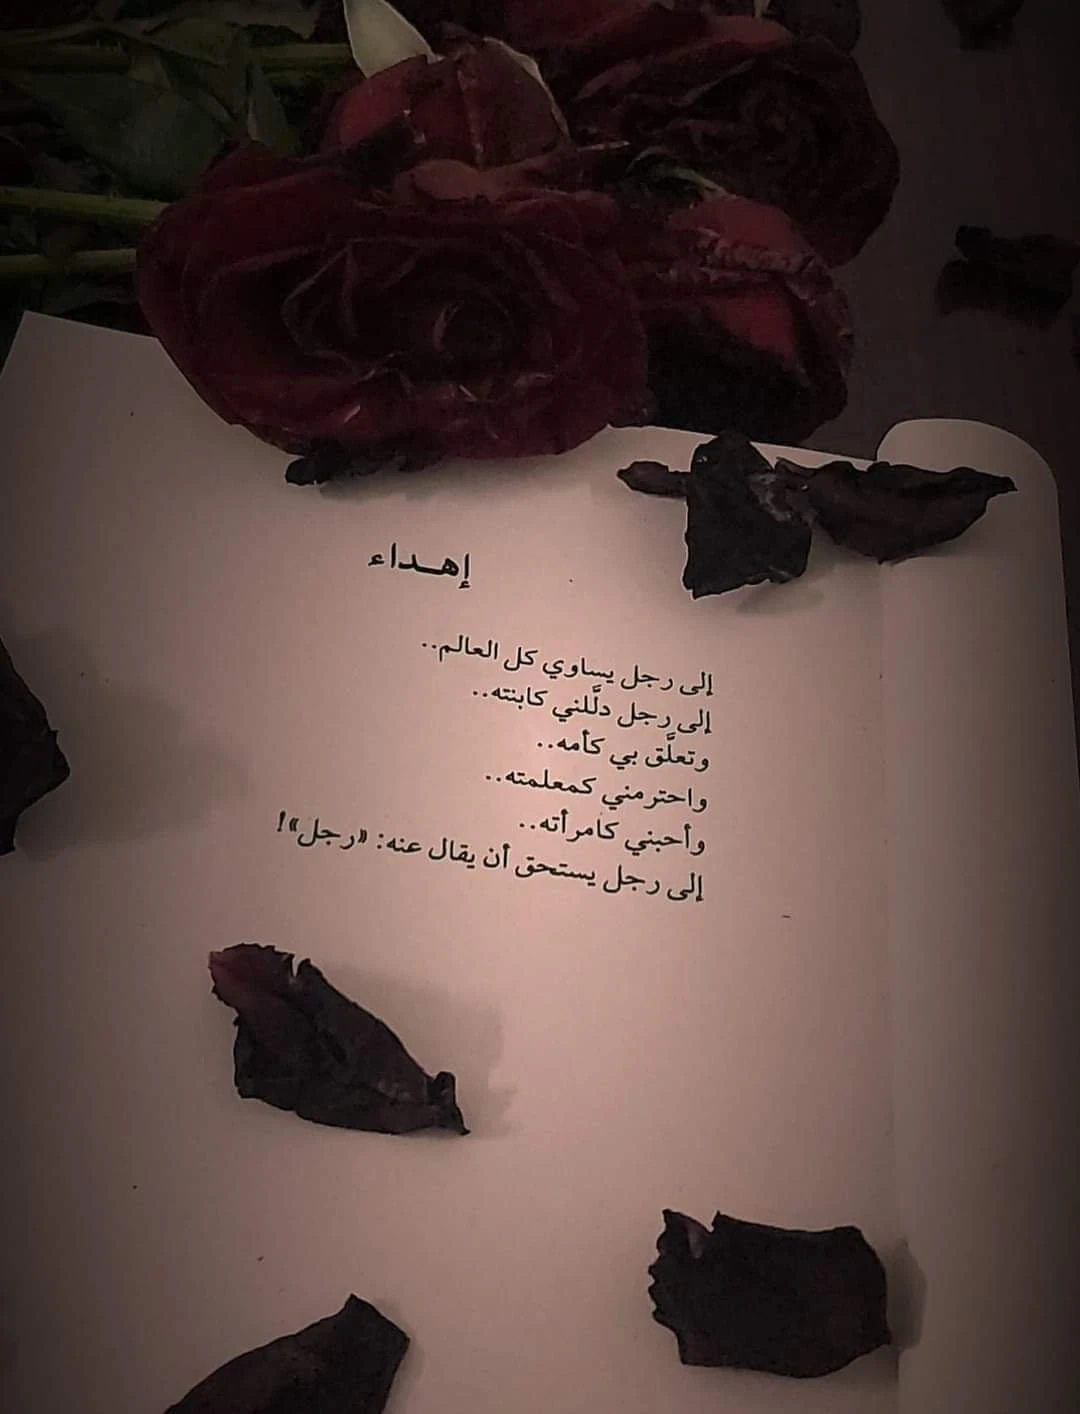 إهـداء
إلى رجل يساوي كل العالم..
إلى رجل دلَّلني كابنته..
وتعلَّق بي كأمه..
واحترمني كمعلمته..
وأحبني كامرأته..
إلى رجل يستحق أن يقال عنه: «رجل»!